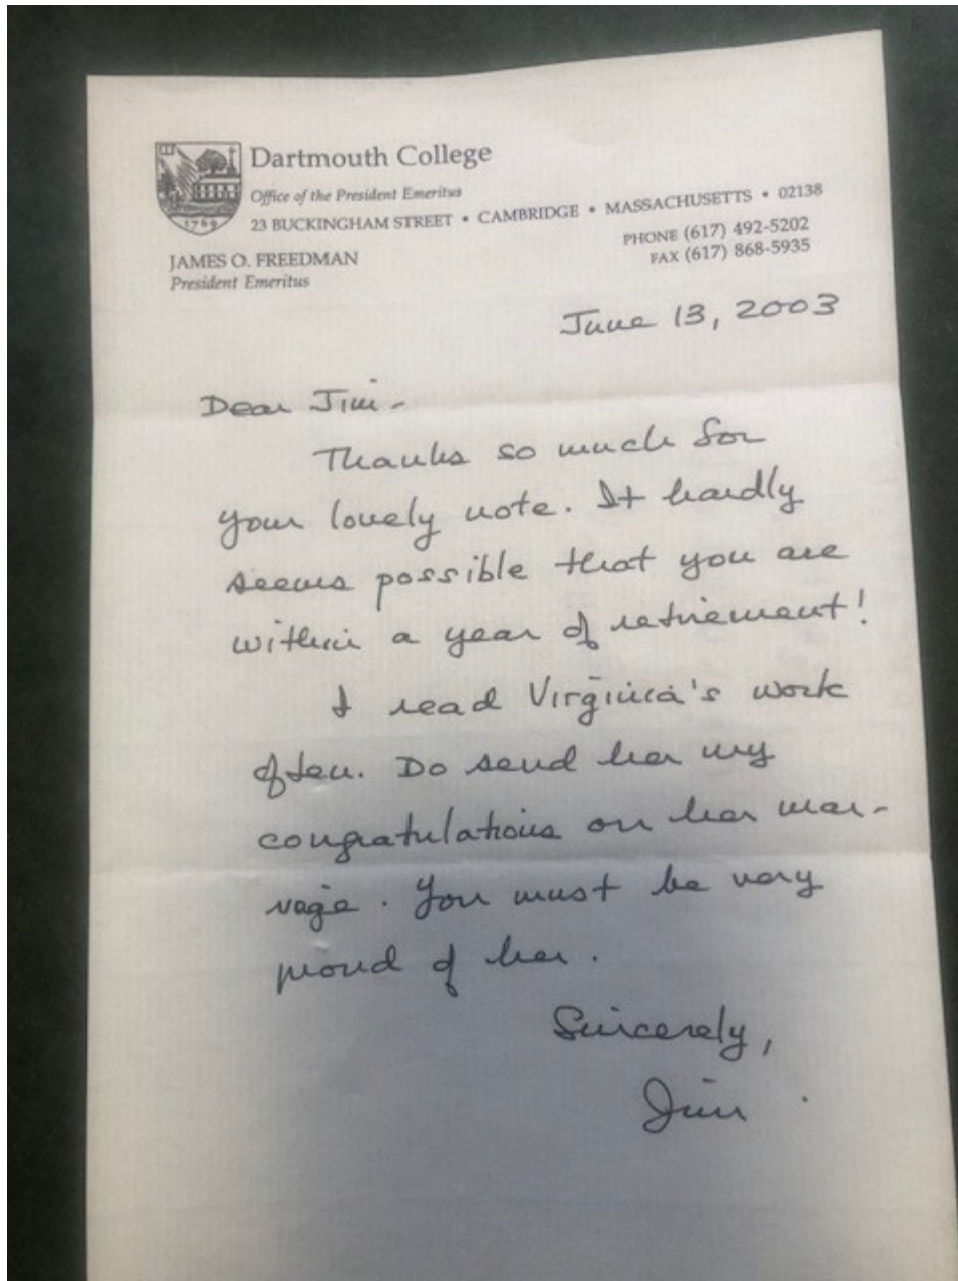 Dartmouth College
Office of the President Emeritus
23 BUCKINGHAM STREET • CAMBRIDGE • MASSACHUSETTS • 02138
PHONE (617) 492-5202
FAX (617) 868-5935
JAMES O. FREEDMAN
President Emeritus
1769
June 13, 2003
Dear Jim -
Thanks so much for
your lovely note. It hardly
seems possible that you are
within a year of retirement!
I read Virginia's work
often. Do send her my
congratulations on her mar-
riage. You must be very
proud of her.
Sincerely,
Jim